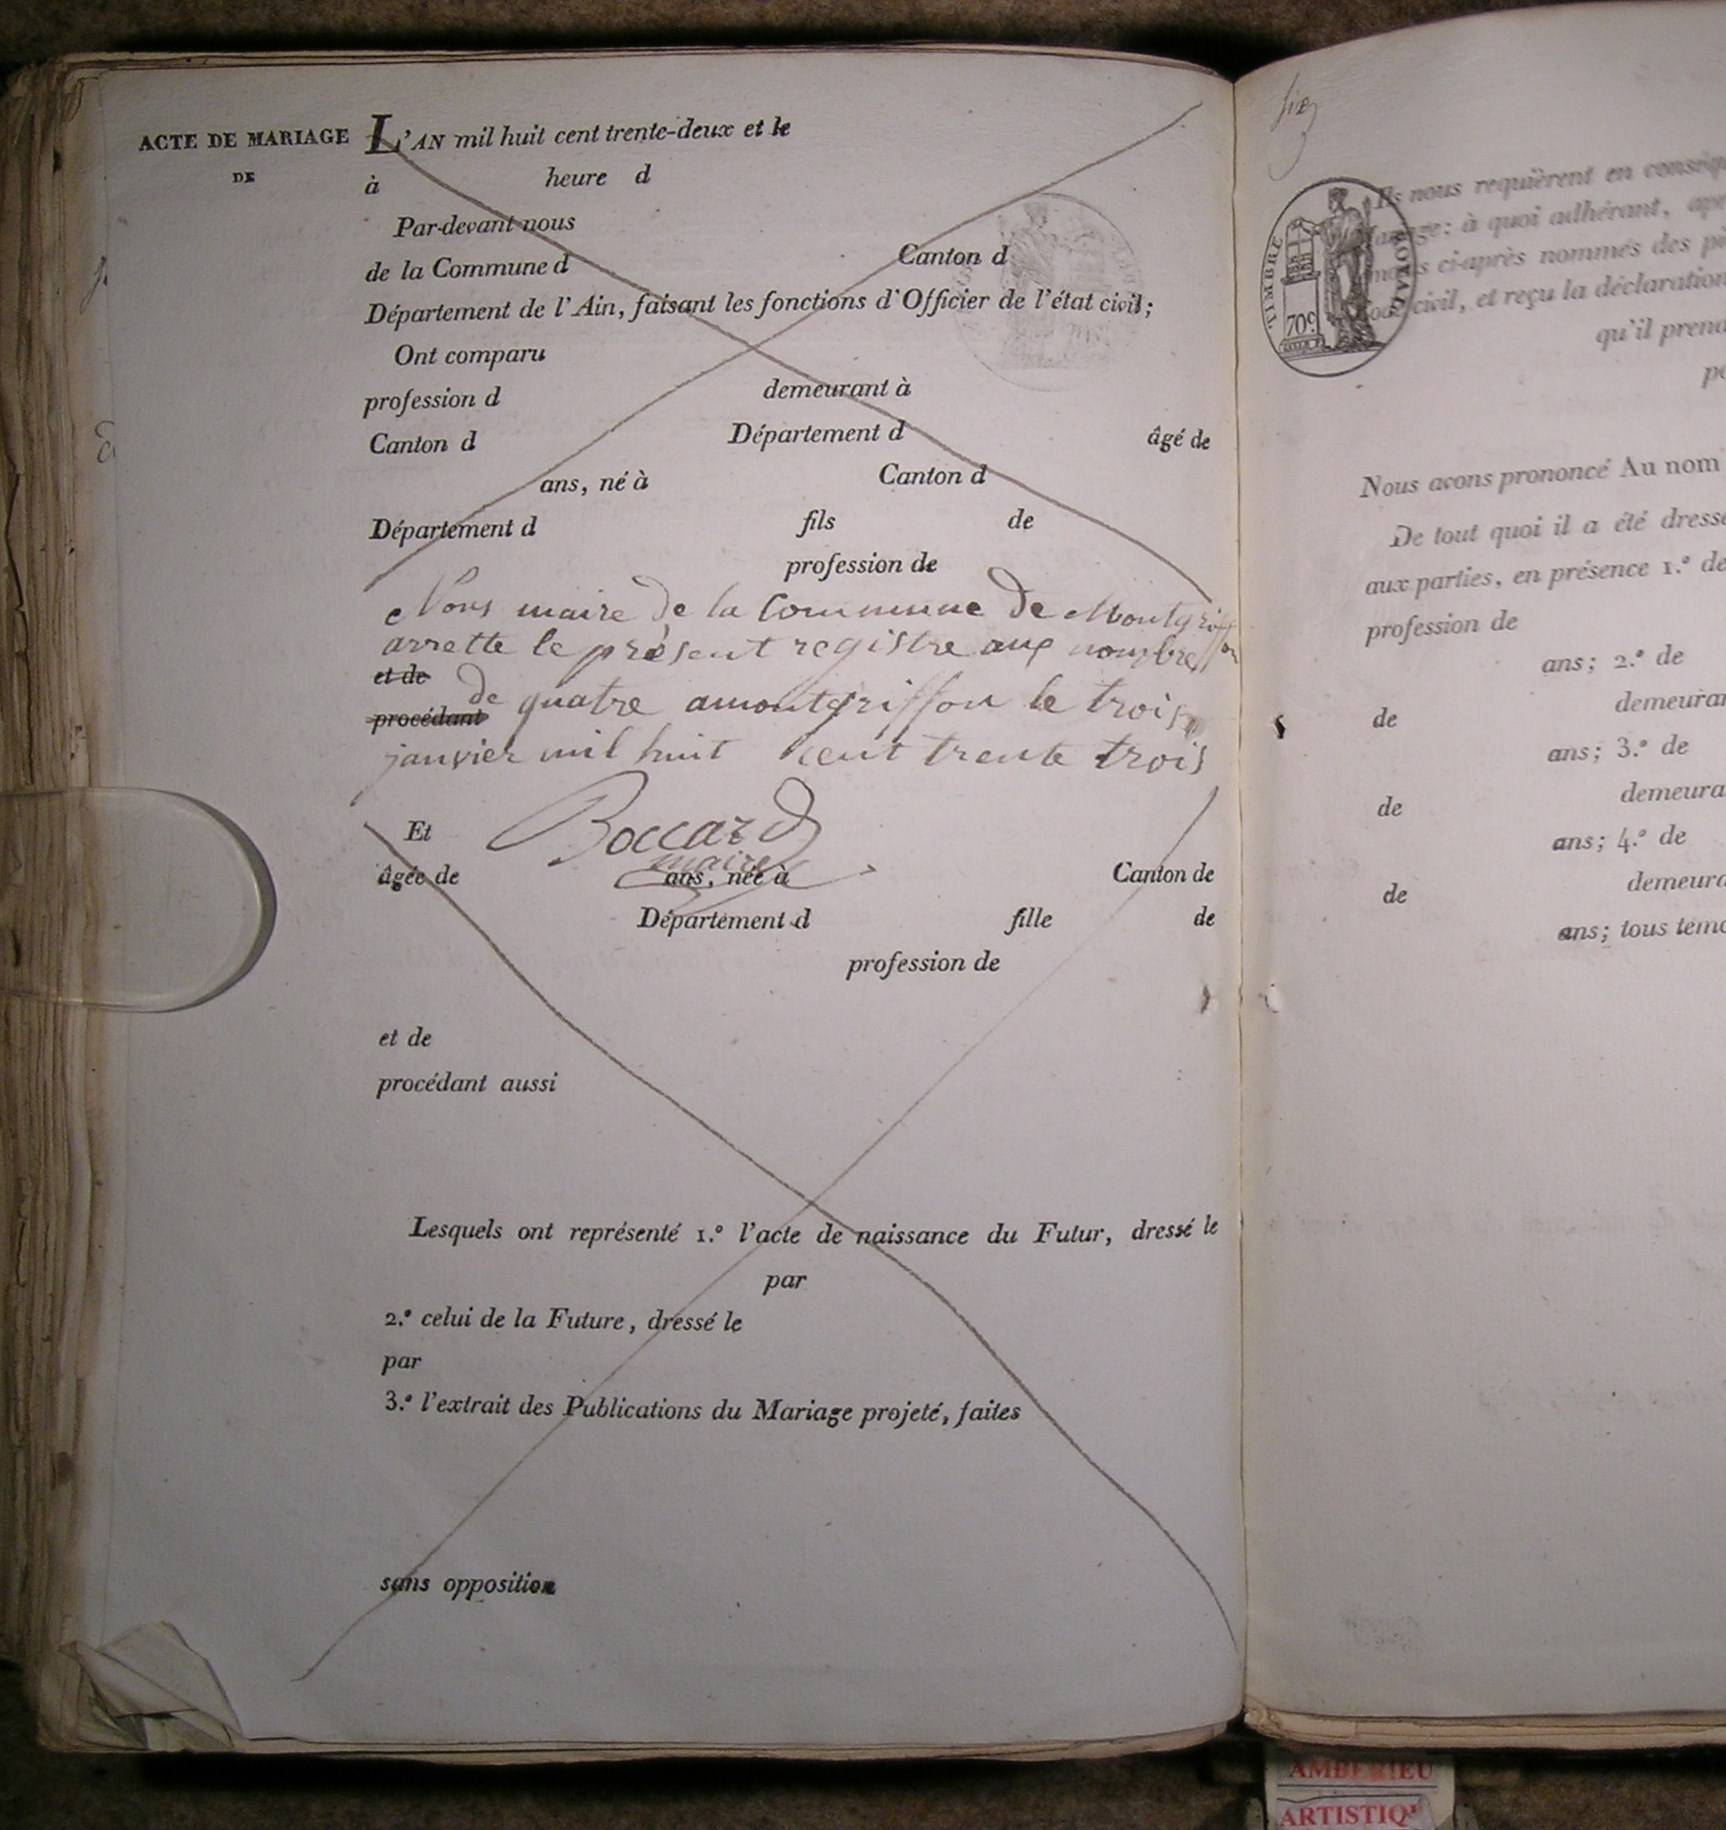 ACTE DE MARIAGE
DE
L'AN mil huit cent trente-deux et le
à heure d
Par-devant nous
de la Commune d Canton d
Département de l'Ain, faisant les fonctions d'Officier de l'état civil;
Ont comparu
profession d demeurant à
Canton d Département d âgé de
ans, né à Canton d
Département d fils de
profession de
Nous maire de la Commune de Montgriffon
arrette le présent registre aux nombre
et de
de quatre amontgriffon le trois
procédant
janvier mil huit cent trente trois
Et Boccard
maire
âgée de ans, née à Canton de
Département d fille de
profession de
et de
procédant aussi
Lesquels ont représenté 1.º l'acte de naissance du Futur, dressé le
par
2.º celui de la Future, dressé le
par
3.º l'extrait des Publications du Mariage projeté, faites
sans opposition
TIMBRE ROYAL
70c
Ils nous requièrent en conséq
à quoi adhérant, ap
ci-après nommés des pi
civil, et reçu la déclaration
qu'il prend
Nous avons prononcé Au nom
De tout quoi il a été dressé
aux parties, en présence 1.º de
profession de
ans; 2.º de
de demeura
ans; 3.º de
de demeura
ans; 4.º de
de demeura
ans; tous témo
AMBERIEU
ARTISTIQ